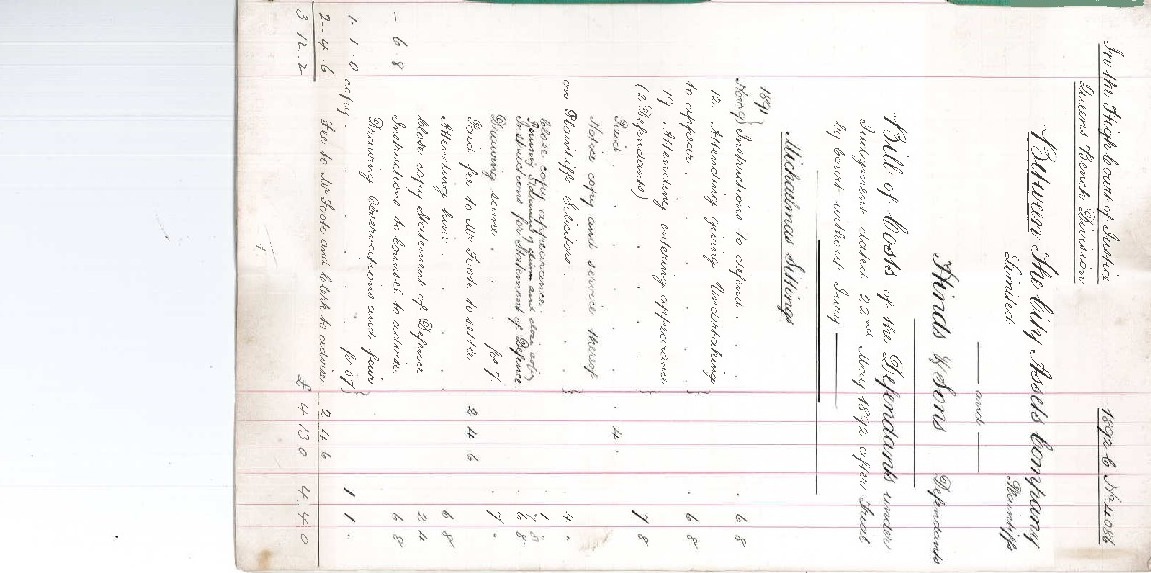 In the High Court of Justice 1892 C No 1086
Queens Bench Division
Between The City Assets Company
Limited Plaintiffs
and
Hinds & Sons Defendants
Bill of Costs of the Defendants under
Judgment dated 22nd May 1892 after trial
by Court without Jury
Michaelmas Sittings
1891
Instructions to defend 6 8
12. Attending giving Undertaking
to appear 6 8
17. Attending entering appearance
(2 Defendants) 7 8
Paid 4
Notice copy and service thereof
on Plaintiffs Solicitors 4
Close copy appearance 1
Instructions for Statement of Defence 6 8
Drawing same fos 7. 7
Paid fee to Mr Foote to settle 2 4 6
- 6.8 Attending him 6 8
Close copy Statement of Defence 2 4
Instructions to Counsel to advise 6 8
Drawing Observations and fair
1.1.0 copy fo 67 1 1
2.4.6 Fee to Mr Foote and Clerk to advise 2 4 6
3 12.2 £ 4 13 0 4 4 0